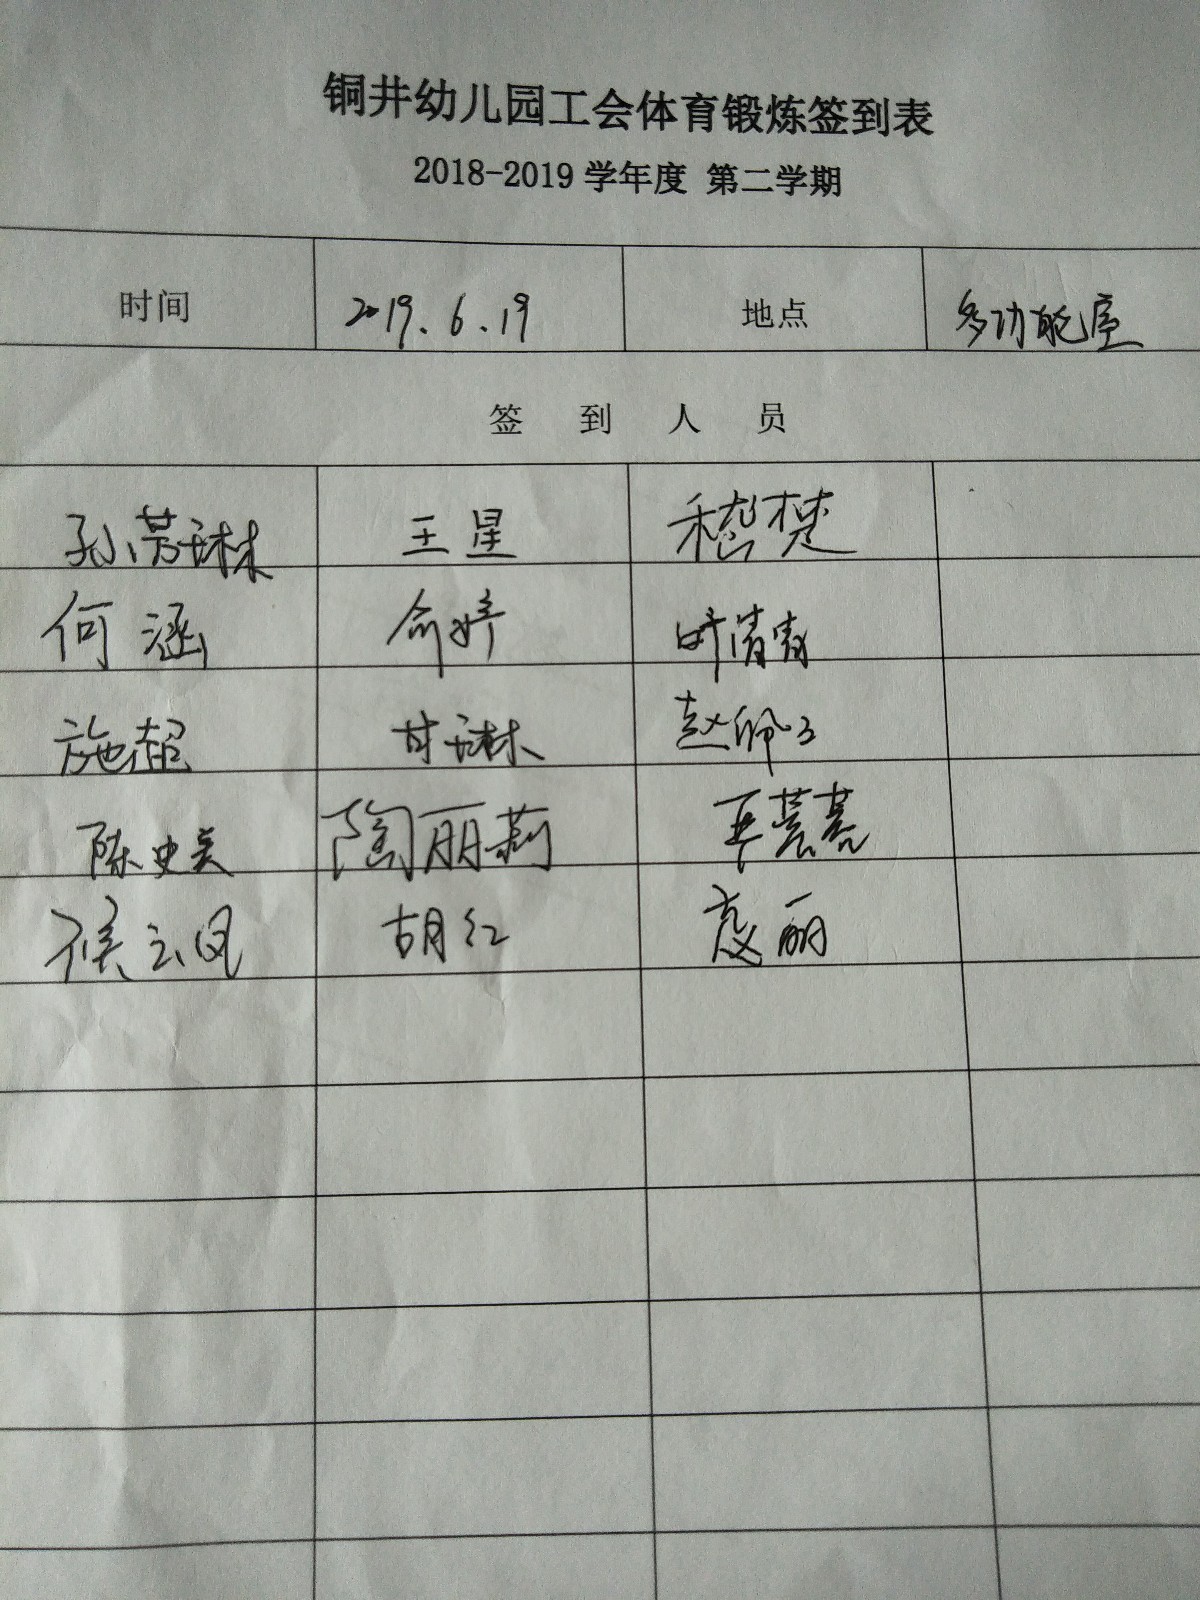 铜井幼儿园工会体育锻炼签到表
2018-2019 学年度 第二学期
时间 2019.6.19 地点 多功能室
签 到 人 员
孙芳琳 王星 嵇楚
何涵 俞婷 叶清青
施超 甘琳
陶丽莉
侯云凤 胡红 葛丽